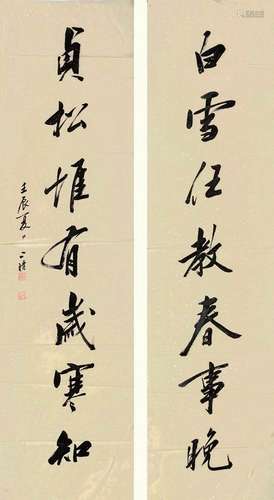 白雪任教春事晚
貞松惟有歲寒知
壬辰夏